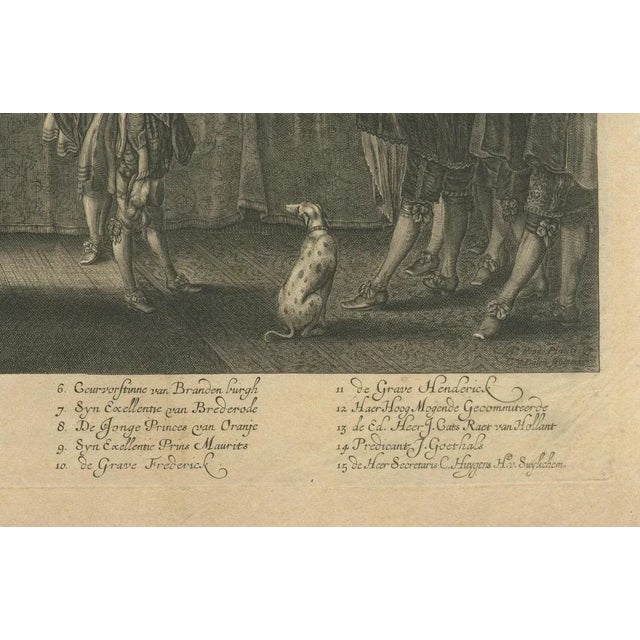 6. Ceurvorstinne van Brandenburgh
7. Syn Exellentie van Brederode
8. De Jonge Princes van Oranje
9. Syn Exellentie Prins Maurits
10. de Grave Frederick
11 de Grave Henderick
12 Haer Hoog Mogende Gecommiteerde
13 de Ed. Heer J. Cats Raet van Hollant
14 Predicant J. Goethals
15 de Heer Secretaris C. Huygens Hr. v. Suylichem.